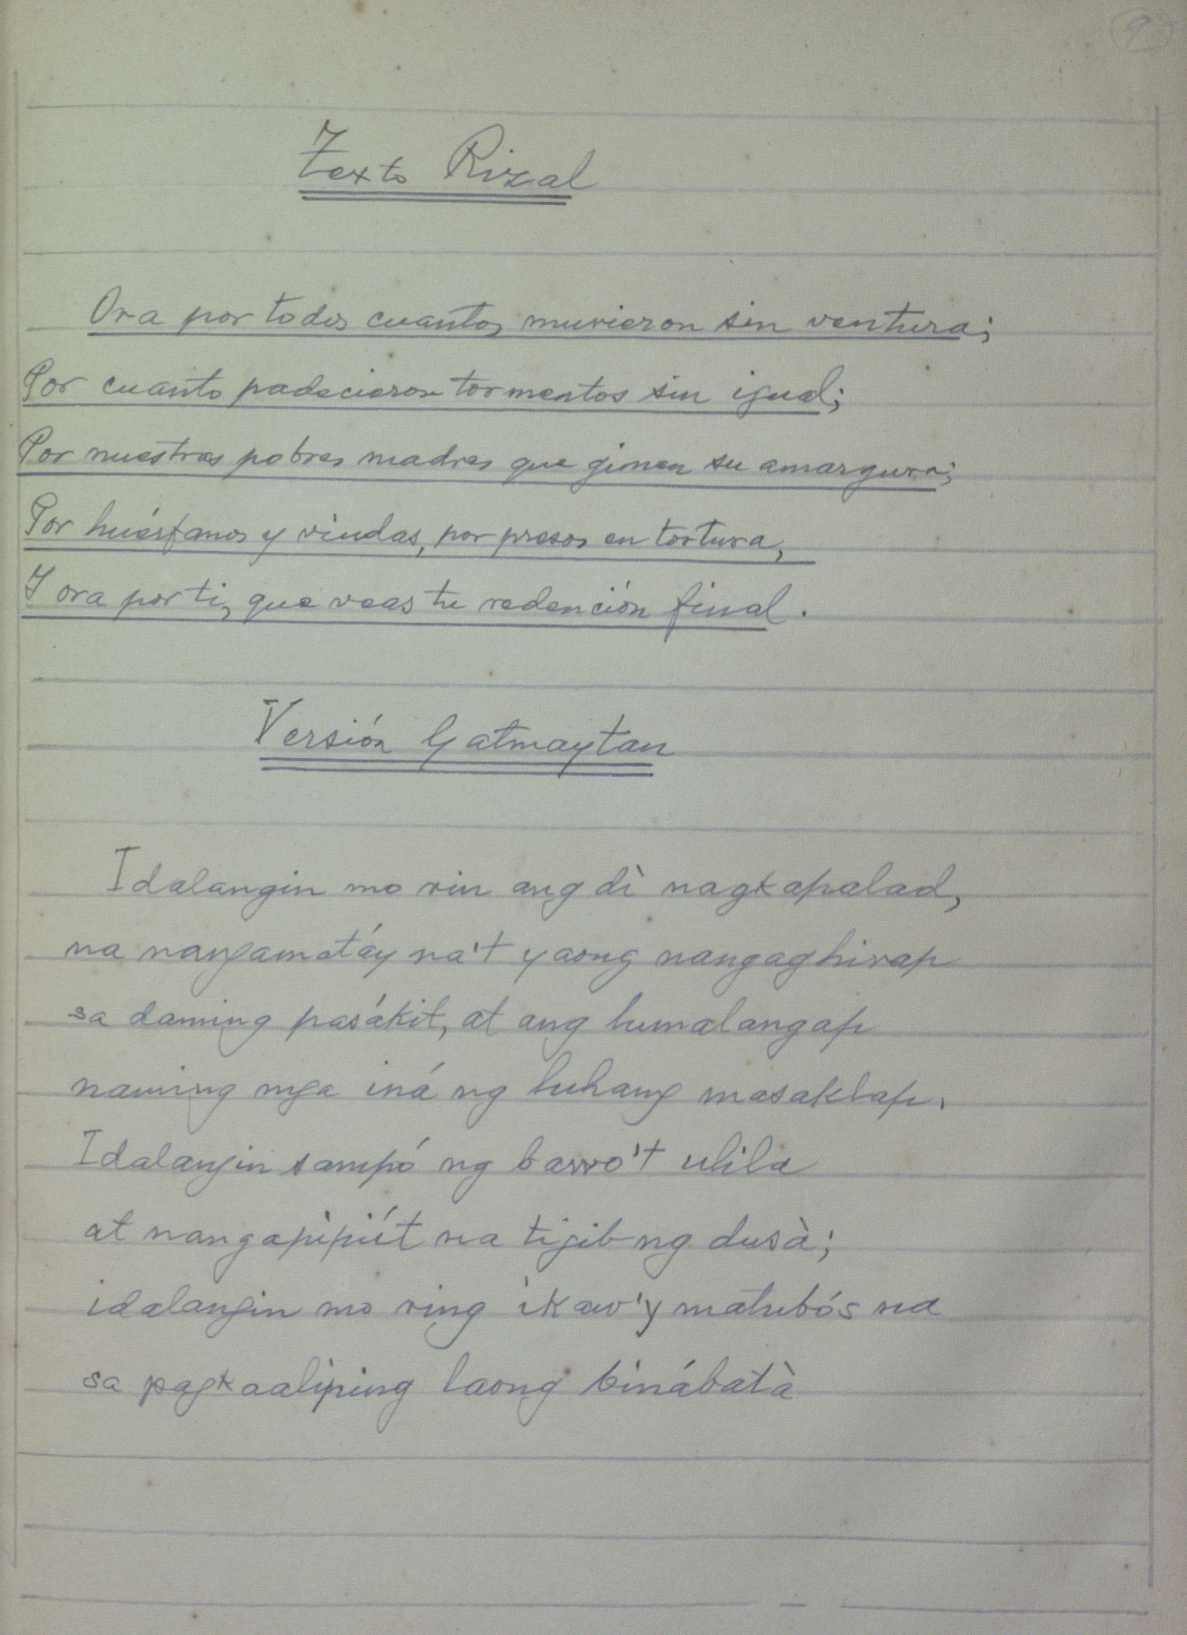 9
Texto Rizal
Ora por todos cuantos murieron sin ventura;
Por cuanto padecieron tormentos sin igual;
Por nuestras pobres madres que gimen su amargura;
Por huérfanos y viudas, por presos en tortura,
Y ora por ti, que veas tu redención final.
Versión Gatmaytan
Idalangin mo rin ang dì nagkapalad,
na nangamatáy na't yaong nangaghirap
sa daming pasákit, at ang lumalangap
naming mga iná ng luhang masaklap.
Idalangin sampó ng bawo't ulila
at nangapìpiít na tigib ng dusà;
idalangin mo ring ikaw'y matubós na
sa pagkaaliping laong binábatà